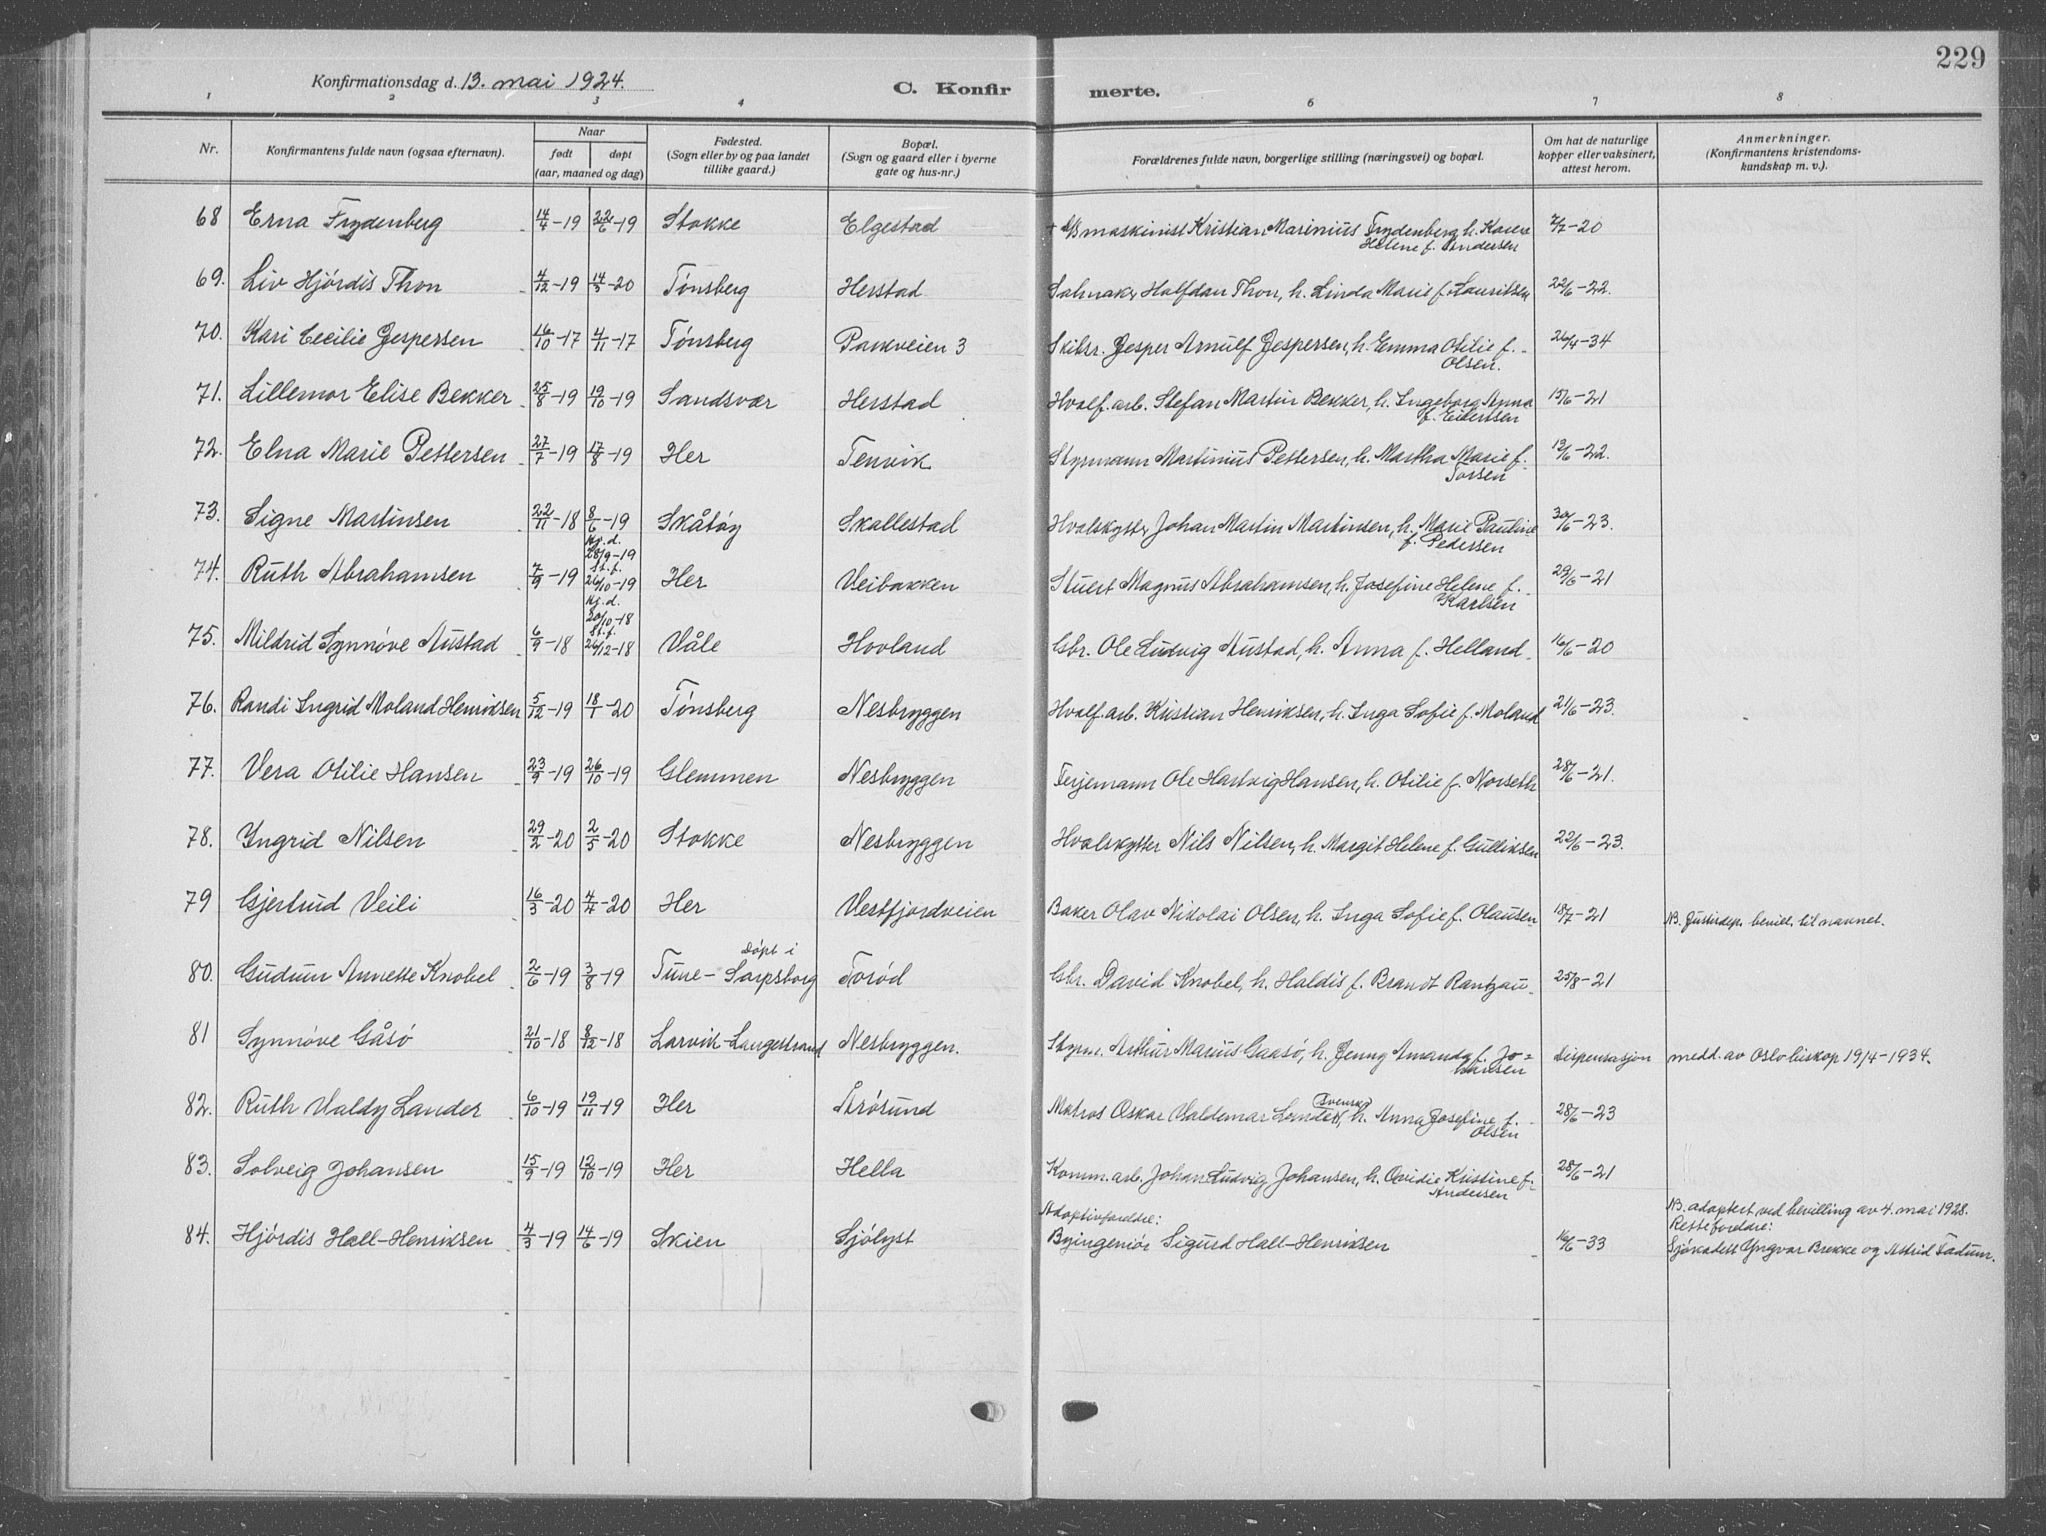 229
Konfirmationsdag d. 13. mai 1924.
C. Konfirmerte.
1 2 3 4 6 7 8
Nr.
Konfirmantens fulde navn (ogsaa efternavn).
Naar
født døpt
(aar, maaned og dag)
Fødested.
(Sogn eller by og paa landet
tillike gaard.)
Bopæl.
(Sogn og gaard eller i byerne
gate og hus-nr.)
Forældrenes fulde navn, borgerlige stilling (næringsvei) og bopæl.
Om hat de naturlige
kopper eller vaksinert,
attest herom.
Anmerkninger.
(Konfirmantens kristendoms-
kundskap m. v.).
68 Erna Frydenberg 14/4-19 22/6-19 Stokke Elgestad + maskinist Kristian Marinius Frydenberg, h. Karen 7/7-20
Helene f. Andersen
69. Liv Hjørdis Thon 4/12-19 14/3-20 Tønsberg Herstad Sahnakr Halfdan Thon, h. Linda Marie f. Lauritsen 22/6-22.
70. Kari Cecilie Jespersen 16/10-17 4/11-17 Tønsberg Parkveien 3 Skibsr. Jesper Arnulf Jespersen, h. Emma Otilie f. 26/4-34
Olsen.
71. Lillemor Elise Bekker 25/8-19 19/10-19 Sandsvær Herstad Hvalf. arb. Stefan Martin Bekker, h. Ingeborg Anna 15/6-21
f. Eilertsen
72. Elna Marie Pettersen 27/7-19 17/8-19 Her Tenvik Styrmann Martinius Pettersen, h. Martha Marie f. 19/6-22.
Torsen
73. Signe Martinsen 22/11-18 8/6-19 Skåtøy Skallestad Hvalskytter Johan Martin Martinsen, h. Marie Pauline 30/6-23.
f. Pedersen
74. Ruth Abrahamsen 7/9-19 Hj.d. 28/9-19 St.f. 26/10-19 Her Veibakken Stuert Magnus Abrahamsen, h. Josefine Helene f. 29/6-21
Karlsen
75. Mildrid Synnøve Austad 6/9-18 Hj.d. 20/10-18 St.f. 26/12-18 Våle Hovland Gbr. Ole Ludvig Austad, h. Anna f. Helland 16/6-20
76. Randi Ingrid Moland Henriksen 5/12-19 18/1-20 Tønsberg Nesbryggen Hvalf. arb. Kristian Henriksen, h. Inga Sofie f. Moland 21/6-23.
77. Vera Otilie Hansen 23/9-19 26/10-19 Glemmen Nesbryggen Ferjemann Ole Hartvig Hansen, h. Otilie f. Norseth 28/6-21.
78. Yngrid Nilsen 29/2-20 2/5-20 Stokke Nesbryggen Hvalskytter Nils Nilsen, h. Margit Helene f. Gulliksen 22/6-23.
79 Gjertrud Veili 16/3-20 4/4-20 Her Vestfjordveien Baker Olav Nikolai Olsen, h. Inga Sofie f. Olausen 18/7-21 NB. Justisdep. bevill. til navnet.
80. Gudrun Annette Knobel 2/6-19 3/8-19 Tune - døpt i Sarpsborg Torød Gbr. David Knobel, h. Haldis f. Brandt Rantzau 25/8-21
81 Synnøve Gåsø 21/10-18 8/12-18 Larvik-Langestrand Nesbryggen. Styrm. Arthur Marius Gaasø, h. Jenny Amanda f. Jo= Dispensasjon medd. av Oslo biskop 19/4-1934.
hansen
82. Ruth Valdy Lander 6/10-19 19/11-19 Her Årøsund Matros Oskar Valdemar Lander, (Svensk) h. Anna Josefine f. 28/6-23
Olsen
83. Solveig Johansen 15/9-19 12/10-19 Her Hella Komm. arb. Johan Ludvig Johansen, h. Ovidie Kristine f. 28/6-21
Andersen
84. Hjørdis Hall-Henriksen 4/3-19 14/6-19 Skien Sjølyst Adoptivforeldre:
Byingeniør Sigurd Hall-Henriksen 16/6-33 NB. adoptert ved bevilling av 4. mai 1928.
Rette foreldre:
Sjøkadett Yngvar Brekke og Astrid Fadum.